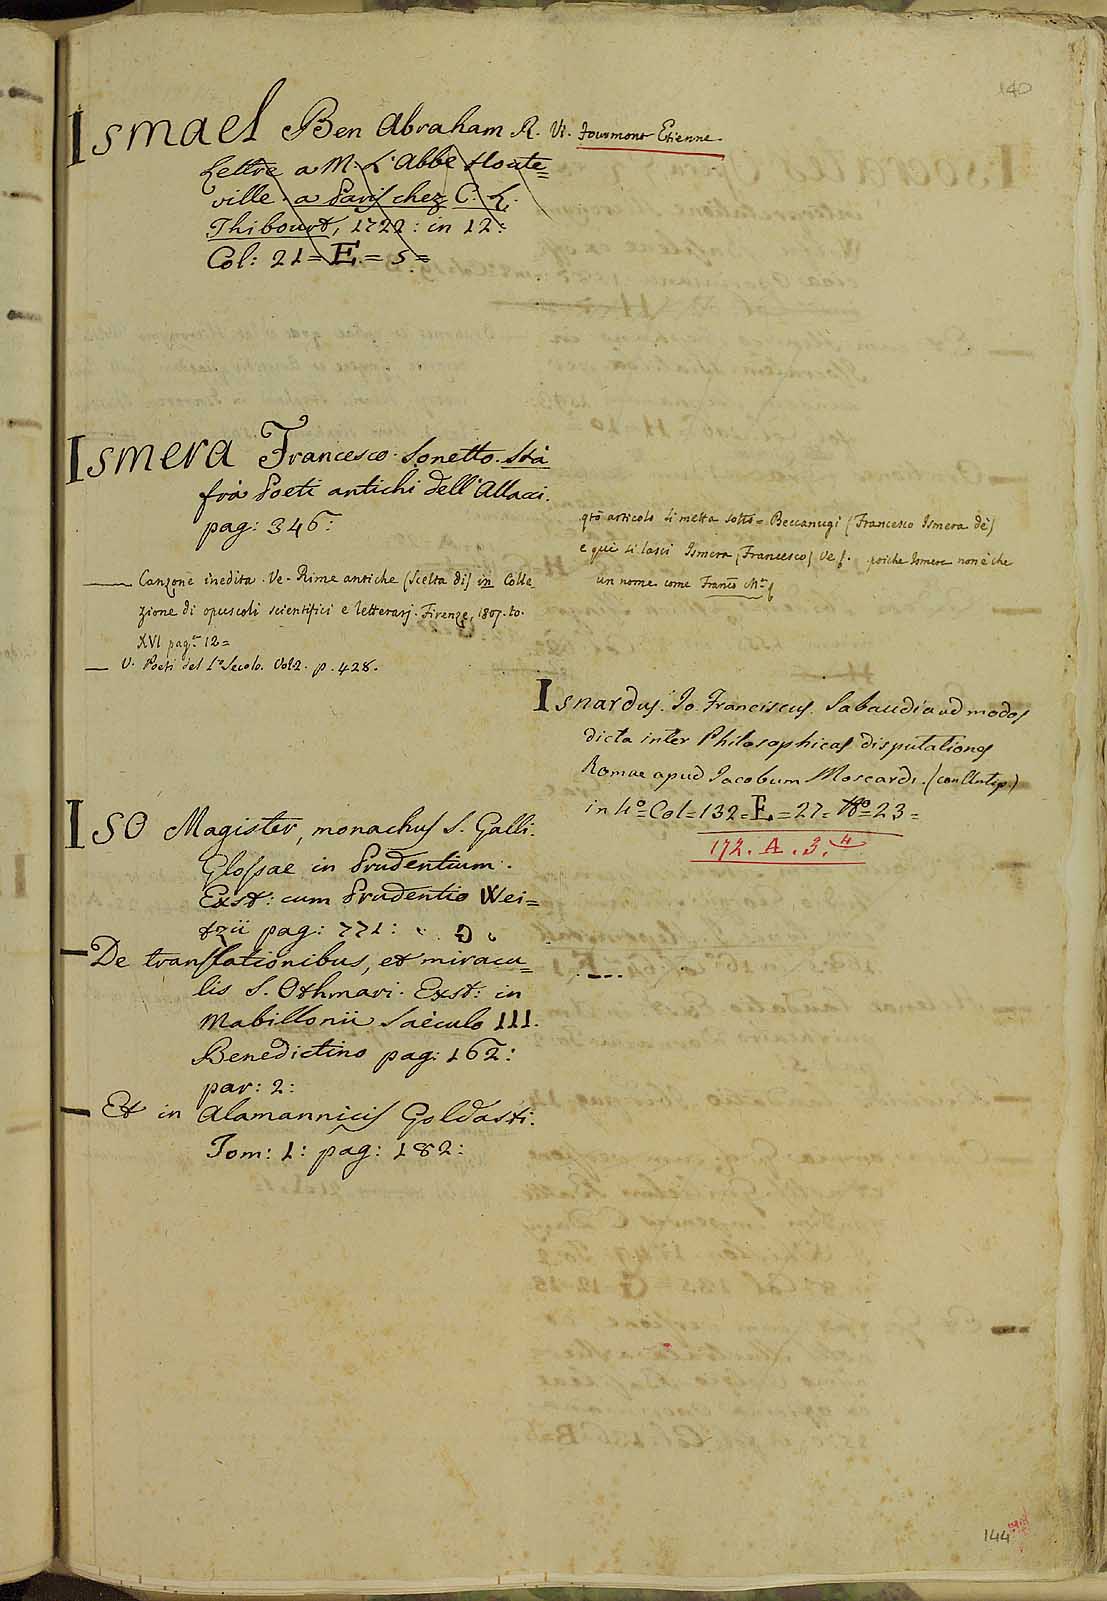 140
Ismael Ben Abraham R. V. Fourmont Etienne
Lettre a M. L'Abbe Houte=
ville. a Paris chez C. L.
Thiboust, 1722: in 12:
Col: 21 = E = 5 =
Ismera Francesco. Sonetto. Stà
frà Poeti antichi dell'Allacci.
pag: 346:
Canzone inedita. Ve. Rime antiche (Scelta di) in Colle
zione di opuscoli scientifici e letterarj. Firenze, 1807. to.
XVI pag.e 12=
V. Poeti del 1º Secolo. Vol 2. p. 428.
qto articolo si metta sotto = Beccanugi (Francesco Ismera de)
e quì si lasci Ismera (Francesco) Ve poiche Ismera non è che
un nome come Franco
Isnardus. Io. Franciscus. Sabaudia ad modos
dicta inter Philosophicas disputationes
Romae apud Jacobum Moscardi.
in 4º = Col = 132 = E = 27 = 23 =
172. A. 3. 4
Iso Magister, monachus S. Galli.
Glossae in Prudentium.
Exst: cum Prudentio Wei=
tzii pag: 771:
De translationibus, et miracu=
lis S. Othmari. Exst: in
Mabillonii Saeculo III.
Benedictino pag: 162:
par: 2:
Et in Alamannicis Goldasti.
Tom: 1: pag: 182:
144